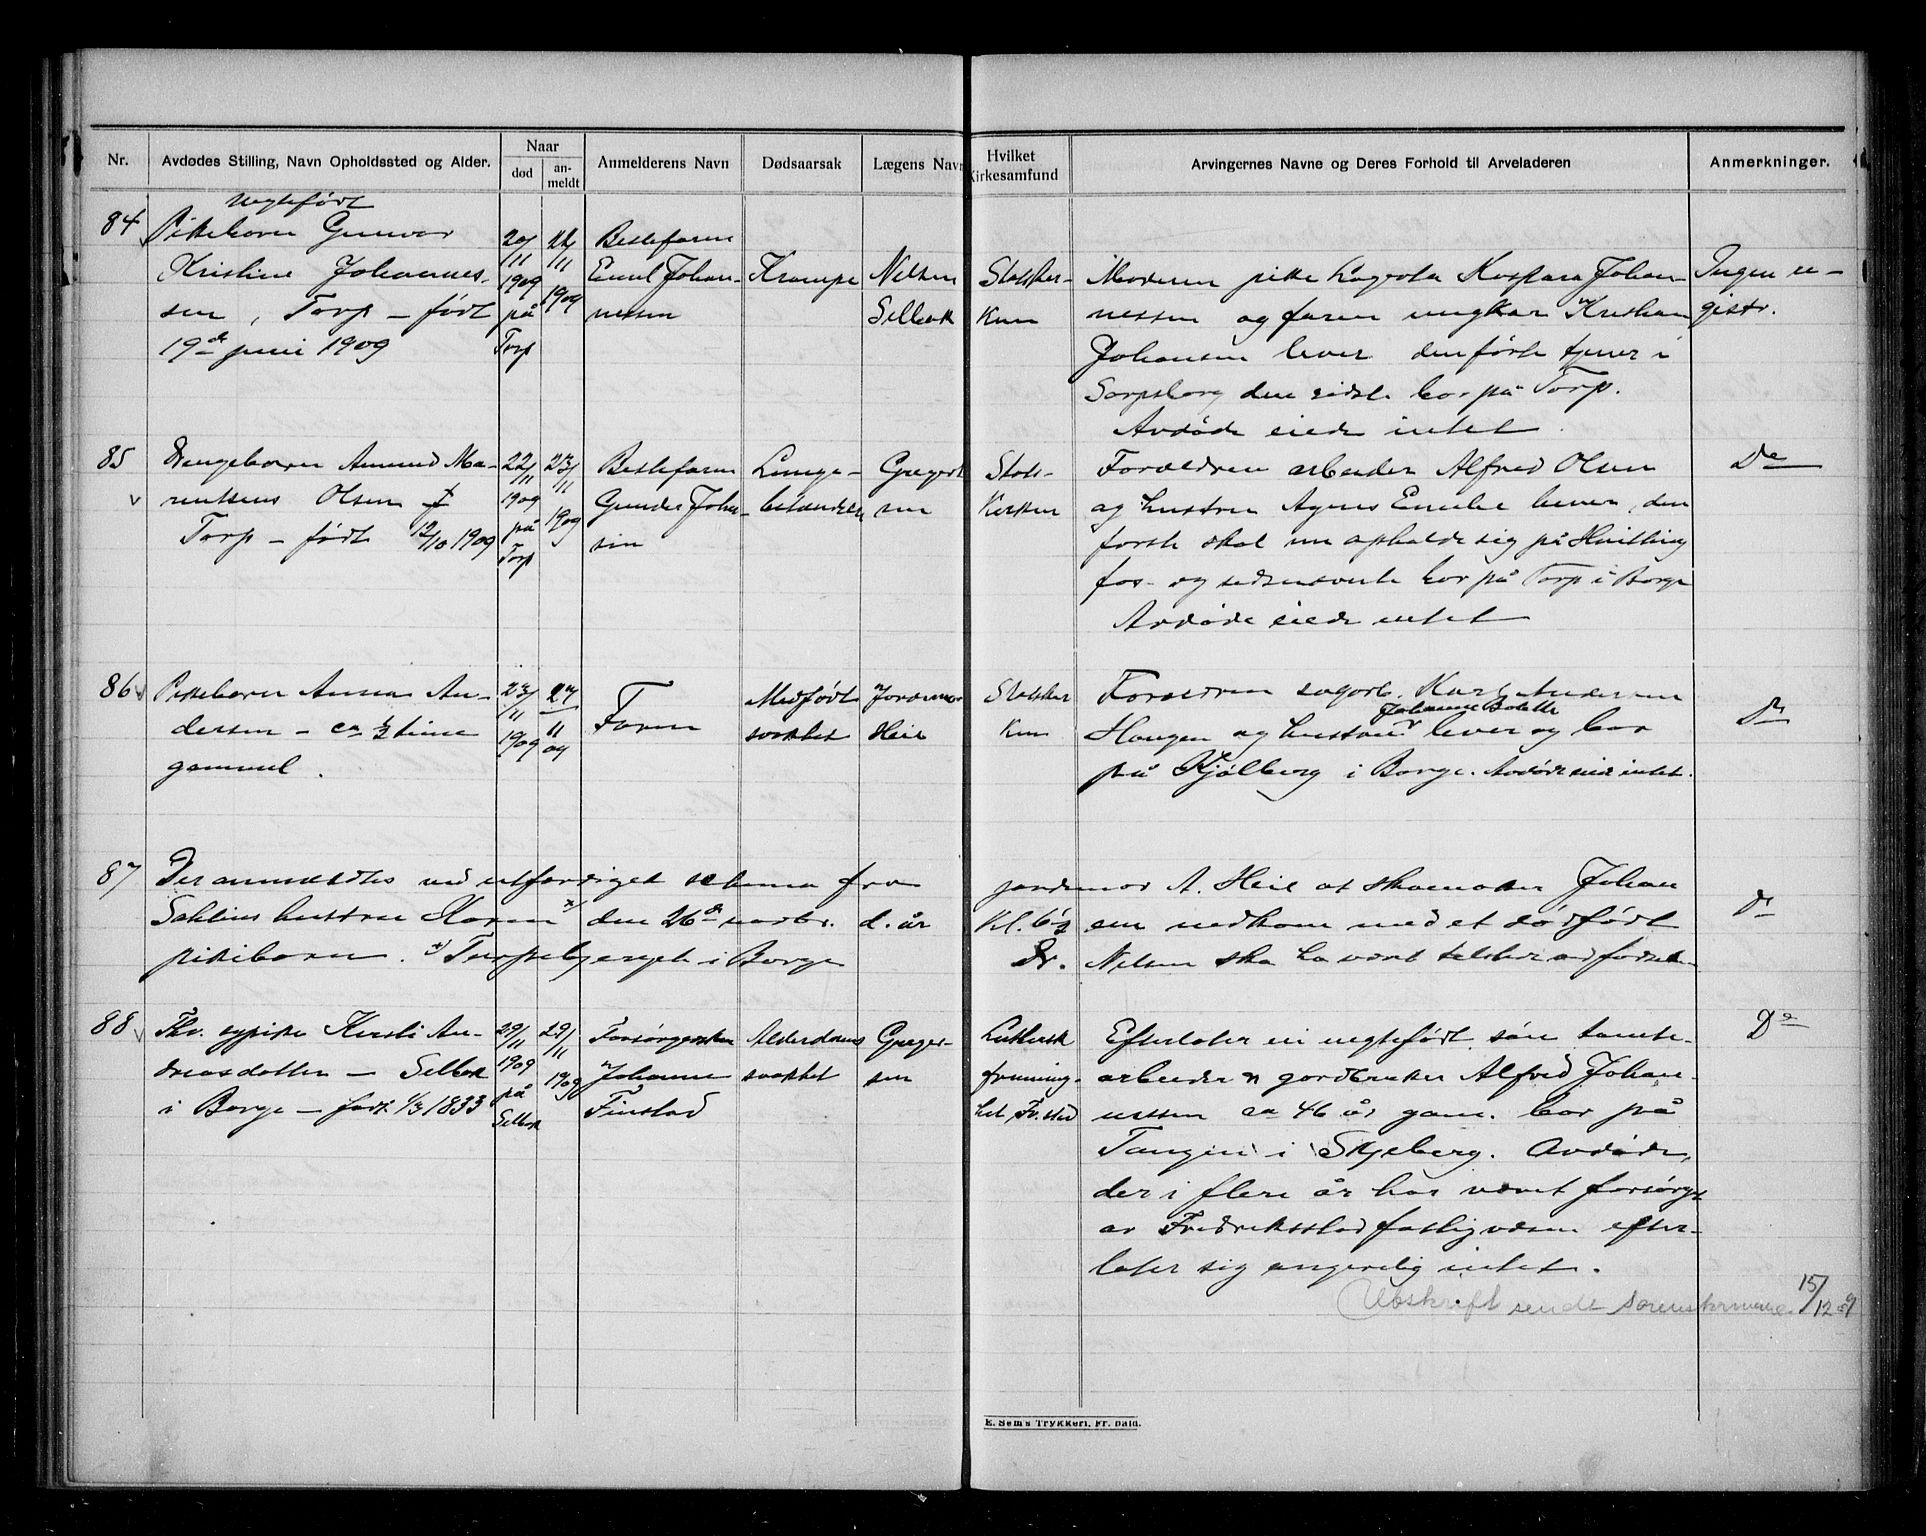 Nr.
Avdødes Stilling, Navn Opholdssted og Alder.
Naar
død
an-
meldt
Anmelderens Navn
Dødsaarsak
Lægens Navn
Hvilket
Kirkesamfund
Arvingernes Navne og Deres Forhold til Arveladeren
Anmerkninger.
84
uegtefødt
Pikebarn Gunvor
Kristine Johannes-
sen, Torp – født
19de juni 1909
20/11
1909
på
Torp
22/11
1909
Bestefaren
Emil Johan-
nessen
Krampe
Nelsen
Sellebak
Statskir-
ken
Moderen pike Lagrota Kaspara Johan-
nessen og faren ungkar Kristian
Johansen lever den første tjener i
Sarpsborg den sidste bor på Torp.
Avdøde eiede intet.
Ingen re-
gistr.
85
Drengebarn Amund Ma-
rentsens Olsen
Torp – født 12/10 1909
22/11
1909
på
Torp
23/11
1909
Bestefaren
Gunder Johan-
sen
Lunge-
betændelse
Gregert-
sen
Stats-
kirken
Forældren arbeider Alfred Olsen
og hustru Agnes Emelie lever, den
første skal nu opholde sig på Hvitting
fos- og sidstnævnte bor på Torp i Borge
Avdøde eiede intet
Do
86
Pikebarn Anna An-
dersen – ca ½ time
gammel.
23/11
1909
27
11
09
Faren
Medfødt
svakhet
Jordmor
Heie
Statskir
ken
Forældren sagarb. Karl Andersen
Johanne Bolette
Haugen og hustru lever og bor
på Kjølberg i Borge. Avdøde eiede intet.
Do
87
Der anmeldtes ved utfærdiget schema fra jordmor A. Heie at skomaker Johan
Sahlins hustru Karen x) den 26de novbr. d. år Kl. 6½ em nedkom med et dødfødt
pikebarn. x) Torpebjerget i Borge Dr. Nelsen skal ha været tilstede ved fødselen
Do
88
Fhv. sypike Kersti An-
dreasdatter – Sellebak
i Borge – født 1/3 1833
29/11
1909
på
Sellebak
29/11
1909
Forsørgersken
Johanne
Finstad
Alderdoms
svakhet
Greger-
sen
Luthersk
frimenig-
het, Fr.stad
Efterlater en uegtefødt søn tomte-
arbeider og gardbruker Alfred Johan-
nessen ca 46 år gam. bor på
Tangen i Skjeberg. Avdøde,
der i flere år har været forsørget
av Fredriksstad fattigvæsen efter-
later sig angivelig intet.
Utskrift sendt sorenskriveren 15/12 09
E. Sem's Trykkeri, Fr. hald.